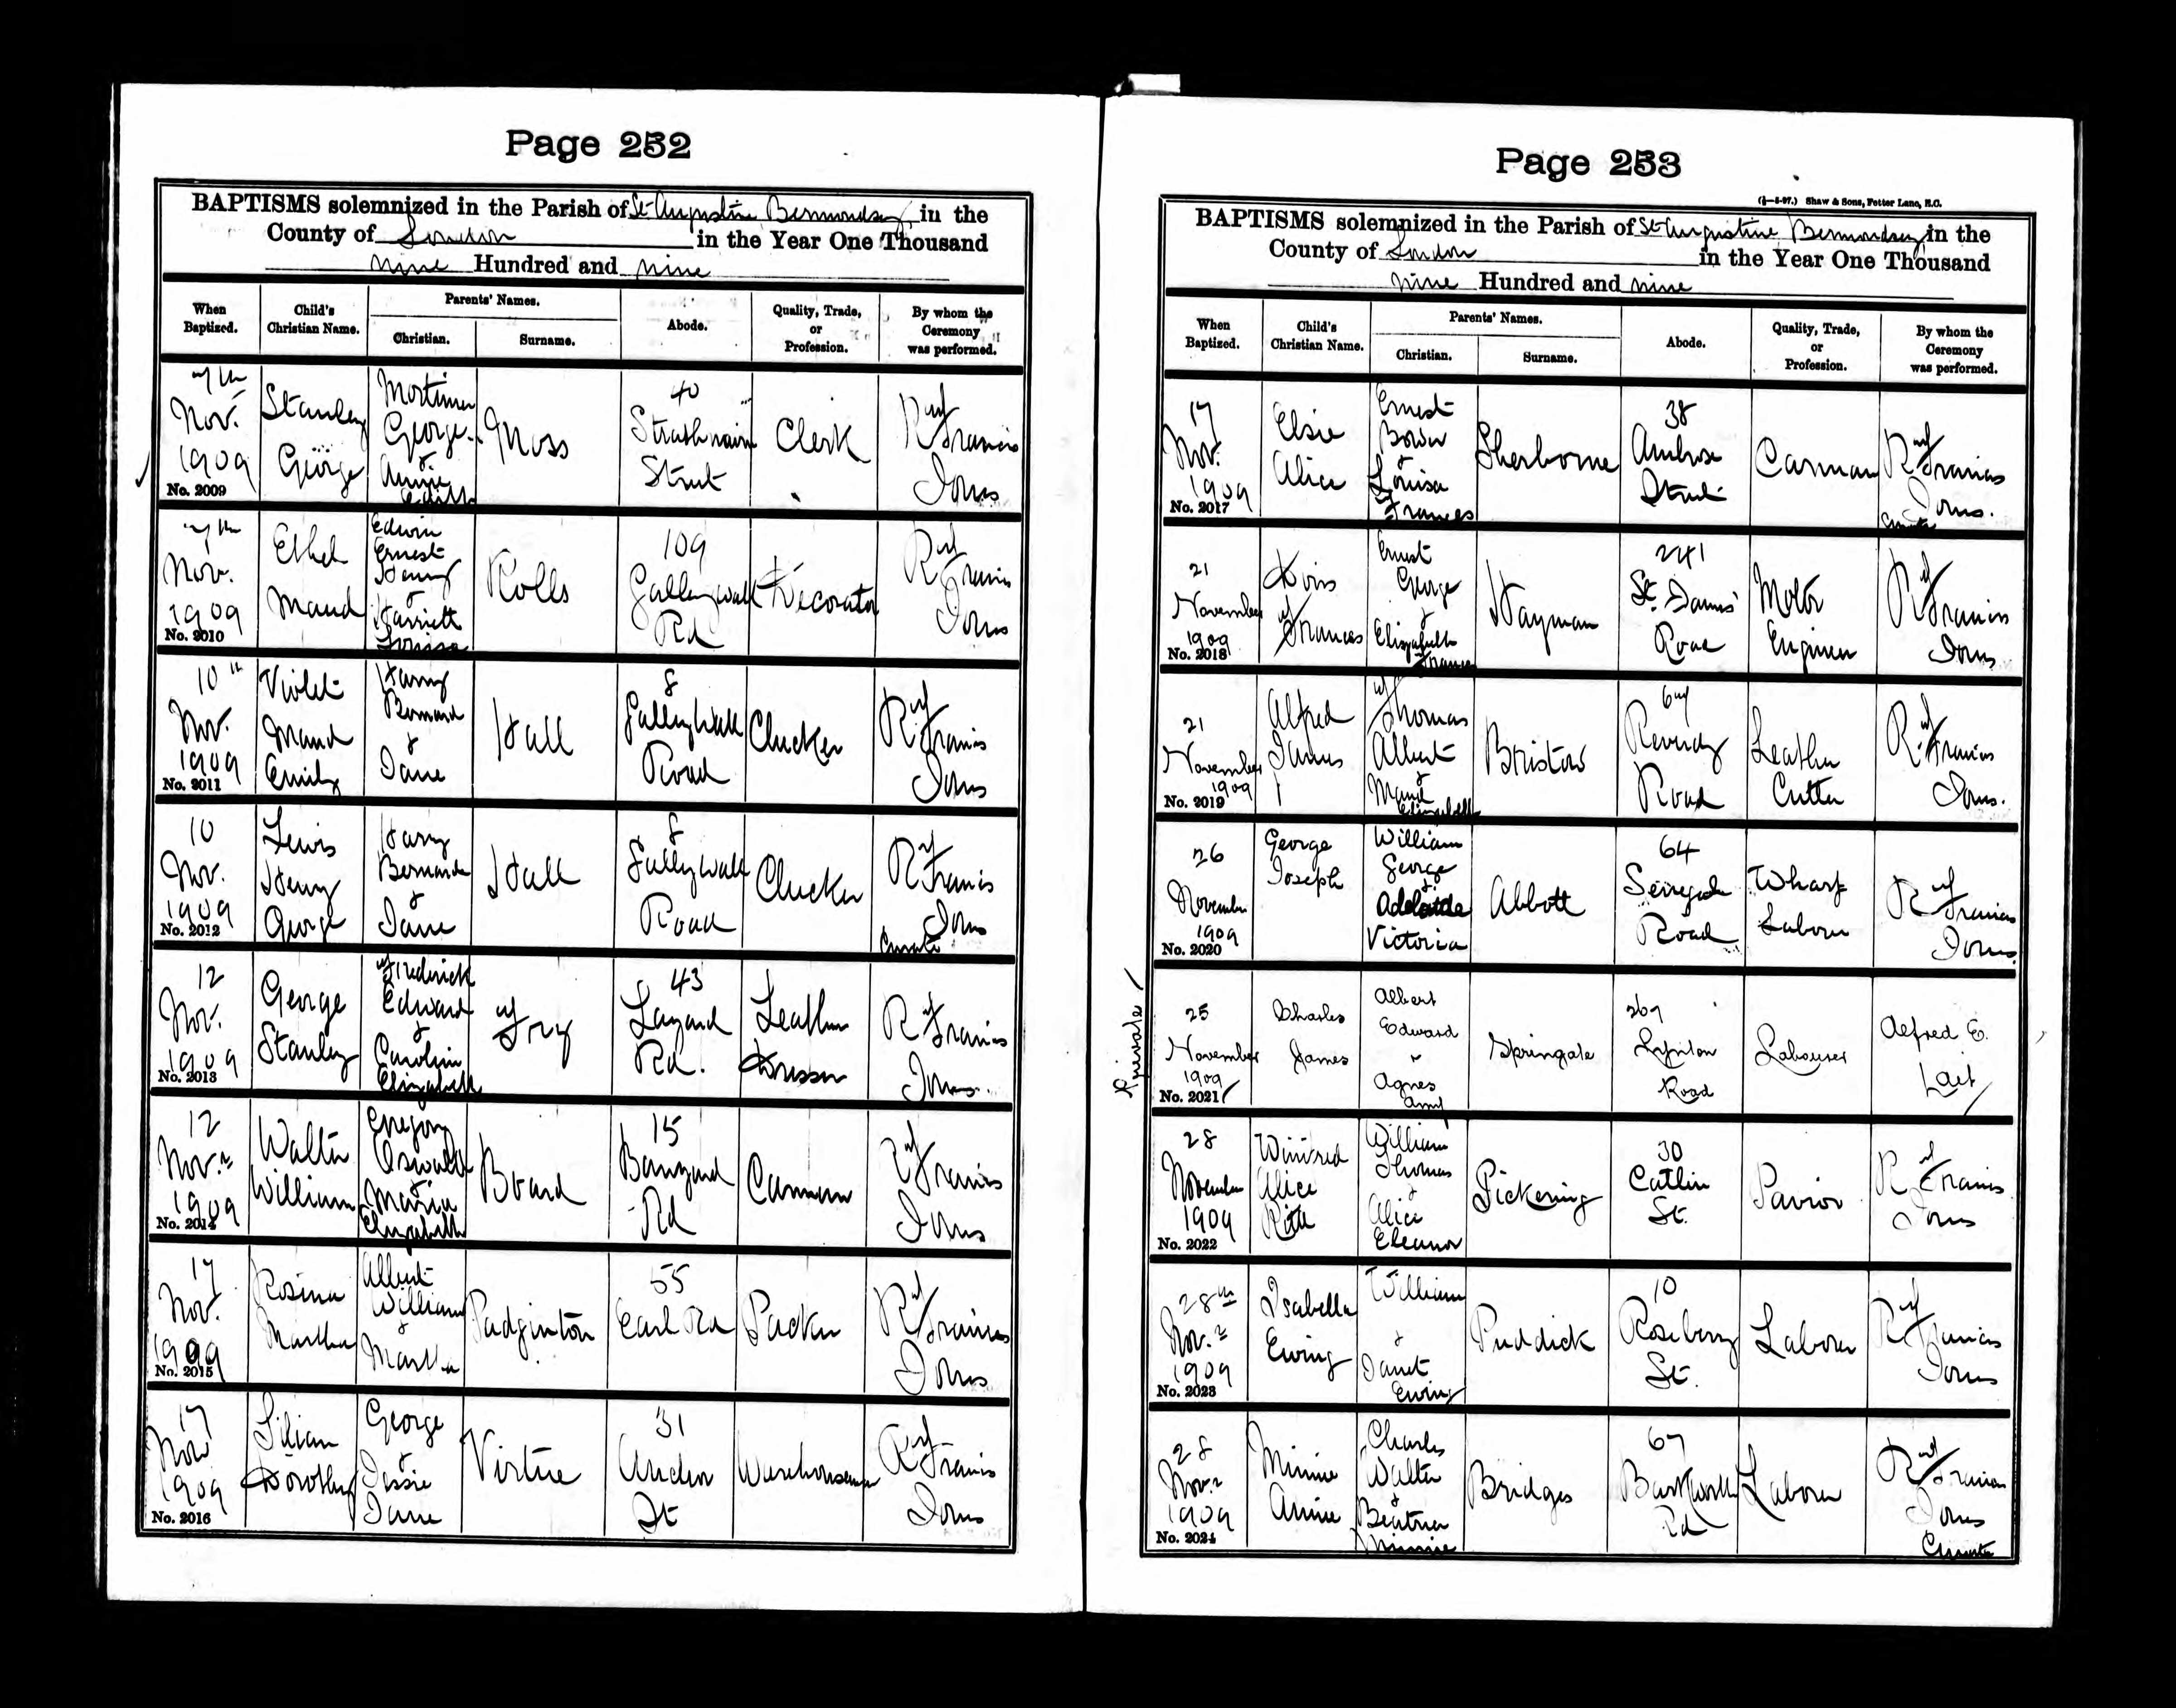 Page 252
BAPTISMS solemnized in the Parish of St Augustine Bermondsey in the
County of London in the Year One Thousand
nine Hundred and nine
When Baptized.
Child's Christian Name.
Parents' Names.
Christian.
Surname.
Abode.
Quality, Trade, or Profession.
By whom the Ceremony was performed.
7th Nov. 1909
No. 2009
Stanley George
Mortimer George & Annie Edith
Moss
40 Strathnairn Street
Clerk
R Francis Jones
7th Nov. 1909
No. 2010
Ethel Maud
Edwin Ernest Henry & Harriett Louisa
Rolls
109 Galleywall Rd
Decorator
R Francis Jones
10th Nov. 1909
No. 2011
Violet Maud Emily
Harry Bernard & Jane
Hall
8 Galleywall Road
Clucker
R Francis Jones
10 Nov. 1909
No. 2012
Lewis Henry George
Harry Bernard & Jane
Hall
8 Galleywall Road
Clucker
R Francis Jones Curate
12 Nov. 1909
No. 2013
George Stanley
Frederick Edward & Caroline Elizabeth
Fry
43 Layard Rd.
Leather Dresser
R Francis Jones
12 Nov. 1909
No. 2014
Walter William
Gregory Oswald & Maria Elizabeth
Board
15 Rd
Carman
R Francis Jones
17 Nov. 1909
No. 2015
Rosina Martha
Albert William & Martha
Padginton
55 Earl Rd
Packer
R Francis Jones
17 Nov 1909
No. 2016
Lilian Dorothy
George & Jessie Jane
Virtue
31 St
Warehouseman
R Francis Jones
Page 253
Shaw & Sons, Fetter Lane, E.C.
BAPTISMS solemnized in the Parish of St Augustine Bermondsey in the
County of London in the Year One Thousand
nine Hundred and nine
When Baptized.
Child's Christian Name.
Parents' Names.
Christian.
Surname.
Abode.
Quality, Trade, or Profession.
By whom the Ceremony was performed.
17 Nov. 1909
No. 2017
Elsie Alice
Ernest & Louisa Frances
Sherborne
38 Ambrose Street
Carman
R Francis Jones. Curate
21 November 1909
No. 2018
Doris Frances
Ernest George & Elizabeth Frances
Hayman
241 St. James' Road
Motor Engineer
R Francis Jones
21 November 1909
No. 2019
Alfred James
Thomas Albert & Maud Elizabeth
Bristow
67 Reverdy Road
Leather Cutter
R Francis Jones.
26 November 1909
No. 2020
George Joseph
William George & Adelaide Victoria
Abbott
64 Road
Wharf Labourer
R Francis Jones.
Private
25 November 1909
No. 2021
Charles James
Albert Edward & Agnes Amy
Springate
267 Lynton Road
Labourer
Alfred E. Lait
28 November 1909
No. 2022
Winifred Alice Rita
William Thomas & Alice Eleanor
Pickering
30 Catlin St.
Pavior
R Francis Jones
28th Nov. 1909
No. 2023
Isabella Ewing
William & Janet Ewing
Puddick
10 Rosebery St.
Labourer
R Francis Jones
28 Nov. 1909
No. 2024
Minnie Annie
Charles Walter & Beatrice Minnie
Bridges
67 Barkworth Rd
Labourer
R Francis Jones Curate